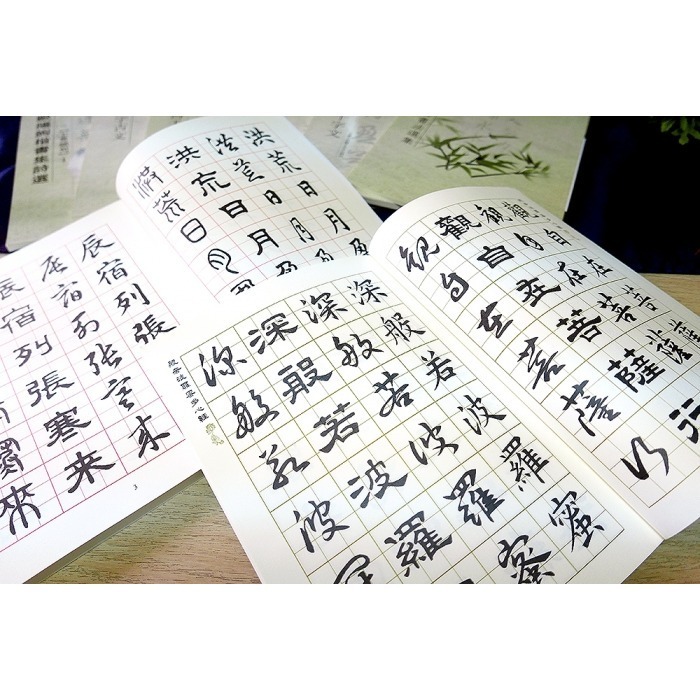 觀自在菩薩
觀自在菩薩
觀自在菩薩行
觀自在菩薩行
深般若波羅蜜
深般若波羅蜜
深般若波羅
深般若波
般若波羅蜜多心經
洪荒日月盈
洪荒日月盈
洪荒日月盈
洪荒日月
辰宿列張
辰宿列張寒來
辰宿列張寒来
來
3
楷書集詩選